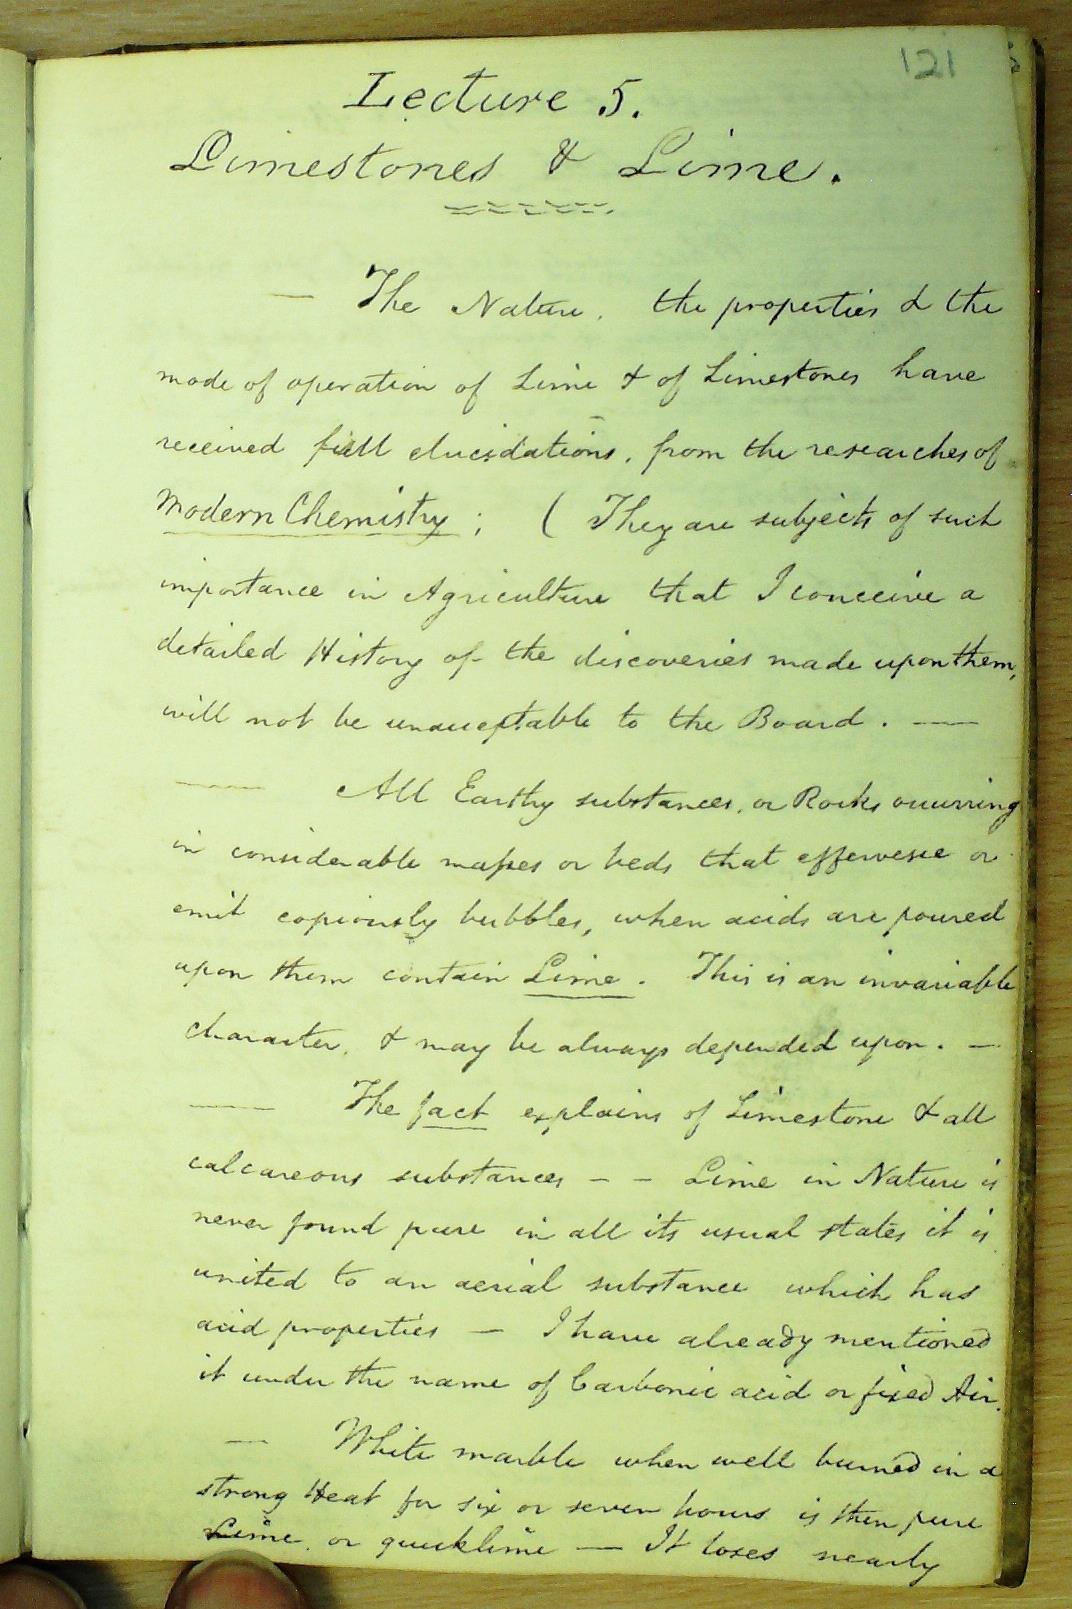 121
Lecture 5.
Limestones & Lime.
— The Nature, the properties & the
mode of operation of Lime & of Limestones have
received full elucidations, from the researches of
Modern Chemistry; ( They are subjects of such
importance in Agriculture that I conceive a
detailed History of the discoveries made upon them,
will not be unacceptable to the Board. —
— All Earthy substances, or Rocks occurring
in considerable masses or beds that effervesce or
emit copiously bubbles, when acids are poured
upon them contain Lime. This is an invariable
character, & may be always depended upon. —
— The fact explains of Limestone & all
calcareous substances - - Lime in Nature is
never found pure in all its usual states it is
united to an aerial substance which has
acid properties — I have already mentioned
it under the name of Carbonic acid or fixed Air.
— White marble when well burned in a
strong Heat for six or seven hours is then pure
Lime, or quicklime — It loses nearly